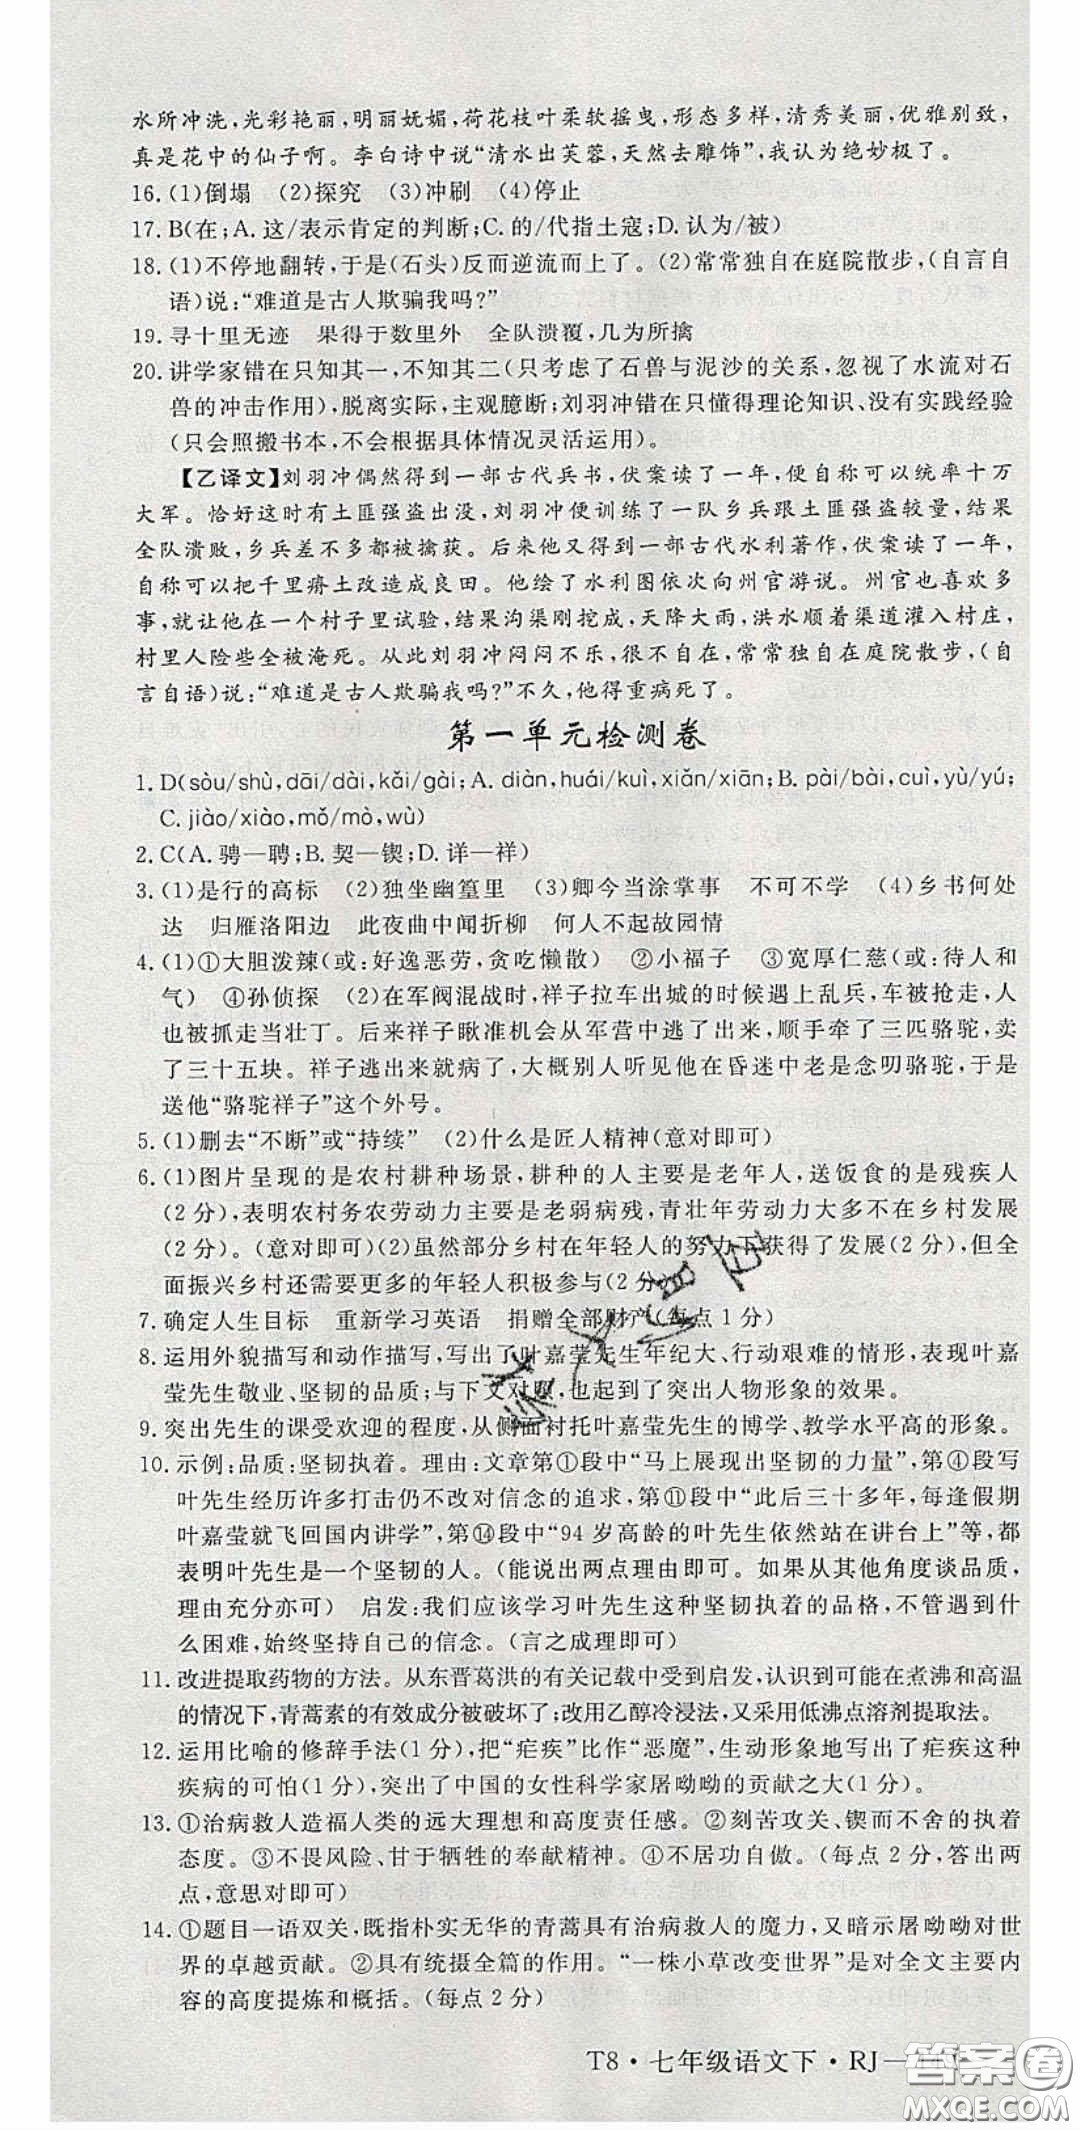 水所冲洗,光彩艳丽,明丽妩媚,荷花枝叶柔软摇曳,形态多样,清秀美丽,优雅别致,
真是花中的仙子啊。李白诗中说“清水出芙蓉,天然去雕饰”,我认为绝妙极了。
16.(1)倒塌 (2)探究 (3)冲刷 (4)停止
17.B(在;A.这/表示肯定的判断;C.的/代指土寇;D.认为/被)
18.(1)不停地翻转,于是(石头)反而逆流而上了。(2)常常独自在庭院散步,(自言自
语)说:“难道是古人欺骗我吗?”
19.寻十里无迹 果得于数里外 全队溃覆,几为所擒
20.讲学家错在只知其一,不知其二(只考虑了石兽与泥沙的关系,忽视了水流对石
兽的冲击作用),脱离实际,主观臆断;刘羽冲错在只懂得理论知识、没有实践经验
(只会照搬书本,不会根据具体情况灵活运用)。
【乙译文】刘羽冲偶然得到一部古代兵书,伏案读了一年,便自称可以统率十万
大军。恰好这时有土匪强盗出没,刘羽冲便训练了一队乡兵跟土匪强盗较量,结果
全队溃败,乡兵差不多都被擒获。后来他又得到一部古代水利著作,伏案读了一年,
自称可以把千里瘠土改造成良田。他绘了水利图依次向州官游说。州官也喜欢多
事,就让他在一个村子里试验,结果沟渠刚挖成,天降大雨,洪水顺着渠道灌入村庄,
村里人险些全被淹死。从此刘羽冲闷闷不乐,很不得意,常常独自在庭院散步,(自
言自语)说:“难道是古人欺骗我吗?”不久,他得重病死了。
第一单元检测卷
1.D(sòu/shù,dāi/dài,kǎi/gài;A.diàn,huái/kuì,xiǎn/xiān;B.pài/bài,cuì,yù/yú;
C.jiào/xiào,mǒ/mò,wù)
2.C(A.骋—聘;B.契—锲;D.详—祥)
3.(1)是行的高标 (2)独坐幽篁里 (3)卿今当涂掌事 不可不学 (4)乡书何处
达 归雁洛阳边 此夜曲中闻折柳 何人不起故园情
4.(1)①大胆泼辣(或:好逸恶劳,贪吃懒散) ②小福子 ③宽厚仁慈(或:待人和
气) ④孙侦探 (2)在军阀混战时,祥子拉车出城的时候遇上乱兵,车被抢走,人
也被抓走当壮丁。后来祥子瞅准机会从军营中逃了出来,顺手牵了三匹骆驼,卖
了三十五块。祥子逃出来就病了,大概别人听见他在昏迷中老是念叨骆驼,于是
送他“骆驼祥子”这个外号。
5.(1)删去“不断”或“持续” (2)什么是匠人精神(意对即可)
6.(1)图片呈现的是农村耕种场景,耕种的人主要是老年人,送饭食的是残疾人
(2分),表明农村务农劳动力主要是老弱病残,青壮年劳动力大多不在乡村发展
(2分)。(意对即可)(2)虽然部分乡村在年轻人的努力下获得了发展(2分),但全
面振兴乡村还需要更多的年轻人积极参与(2分)
7.确定人生目标 重新学习英语 捐赠全部财产(每点1分)
8.运用外貌描写和动作描写,写出了叶嘉莹先生年纪大、行动艰难的情形,表现叶嘉
莹先生敬业、坚韧的品质;与下文对照,也起到了突出人物形象的效果。
9.突出先生的课受欢迎的程度,从侧面衬托叶嘉莹先生的博学、教学水平高的形象。
10.示例:品质:坚韧执着。理由:文章第①段中“马上展现出坚韧的力量”,第④段写
叶先生经历许多打击仍不改对信念的追求,第⑪段中“此后三十多年,每逢假期
叶嘉莹就飞回国内讲学”,第⑭段中“94岁高龄的叶先生依然站在讲台上”等,都
表明叶先生是一个坚韧的人。(能说出两点理由即可。如果从其他角度谈品质,
理由充分亦可) 启发:我们应该学习叶先生这种坚韧执着的品格,不管遇到什
么困难,始终坚持自己的信念。(言之成理即可)
11.改进提取药物的方法。从东晋葛洪的有关记载中受到启发,认识到可能在煮沸和高温
的情况下,青蒿素的有效成分被破坏了;改用乙醇冷浸法,又采用低沸点溶剂提取法。
12.运用比喻的修辞手法(1分),把“疟疾”比作“恶魔”,生动形象地写出了疟疾这种
疾病的可怕(1分),突出了中国的女性科学家屠呦呦的贡献之大(1分)。
13.①治病救人造福人类的远大理想和高度责任感。②刻苦攻关、锲而不舍的执着
态度。③不畏风险、甘于牺牲的奉献精神。④不居功自傲。(每点2分,答出两
点,意思对即可)
14.①题目一语双关,既指朴实无华的青蒿具有治病救人的魔力,又暗示屠呦呦对世
界的卓越贡献。②具有统摄全篇的作用。“一株小草改变世界”是对全文主要内
容的高度提炼和概括。(每点2分)
T8·七年级语文下·RJ—
答案圈
MXQE.COM